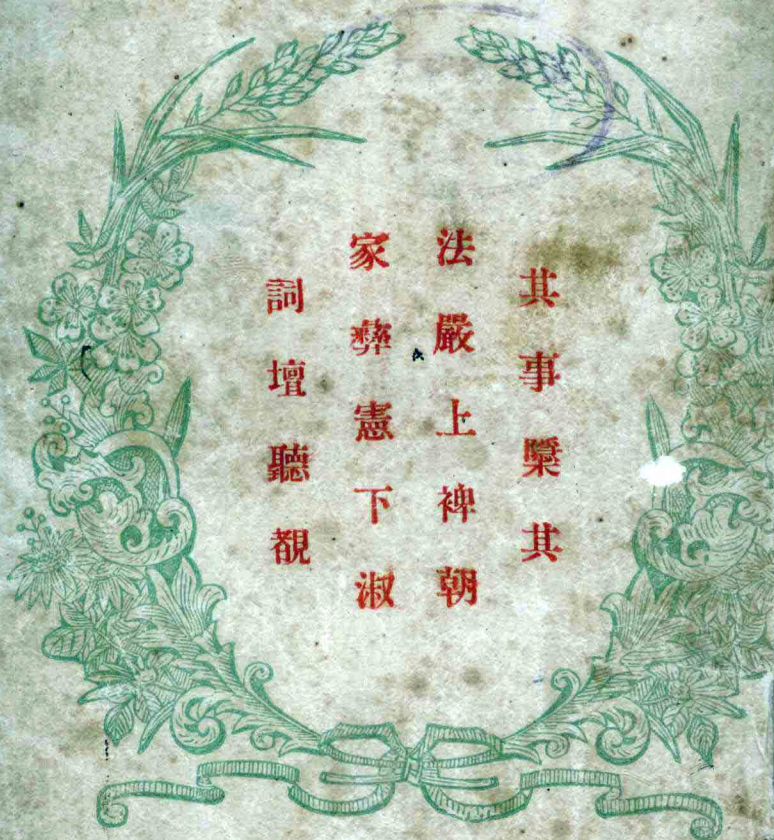 其事㮣其
法嚴上裨朝
家彝憲下淑
詞壇聽覩